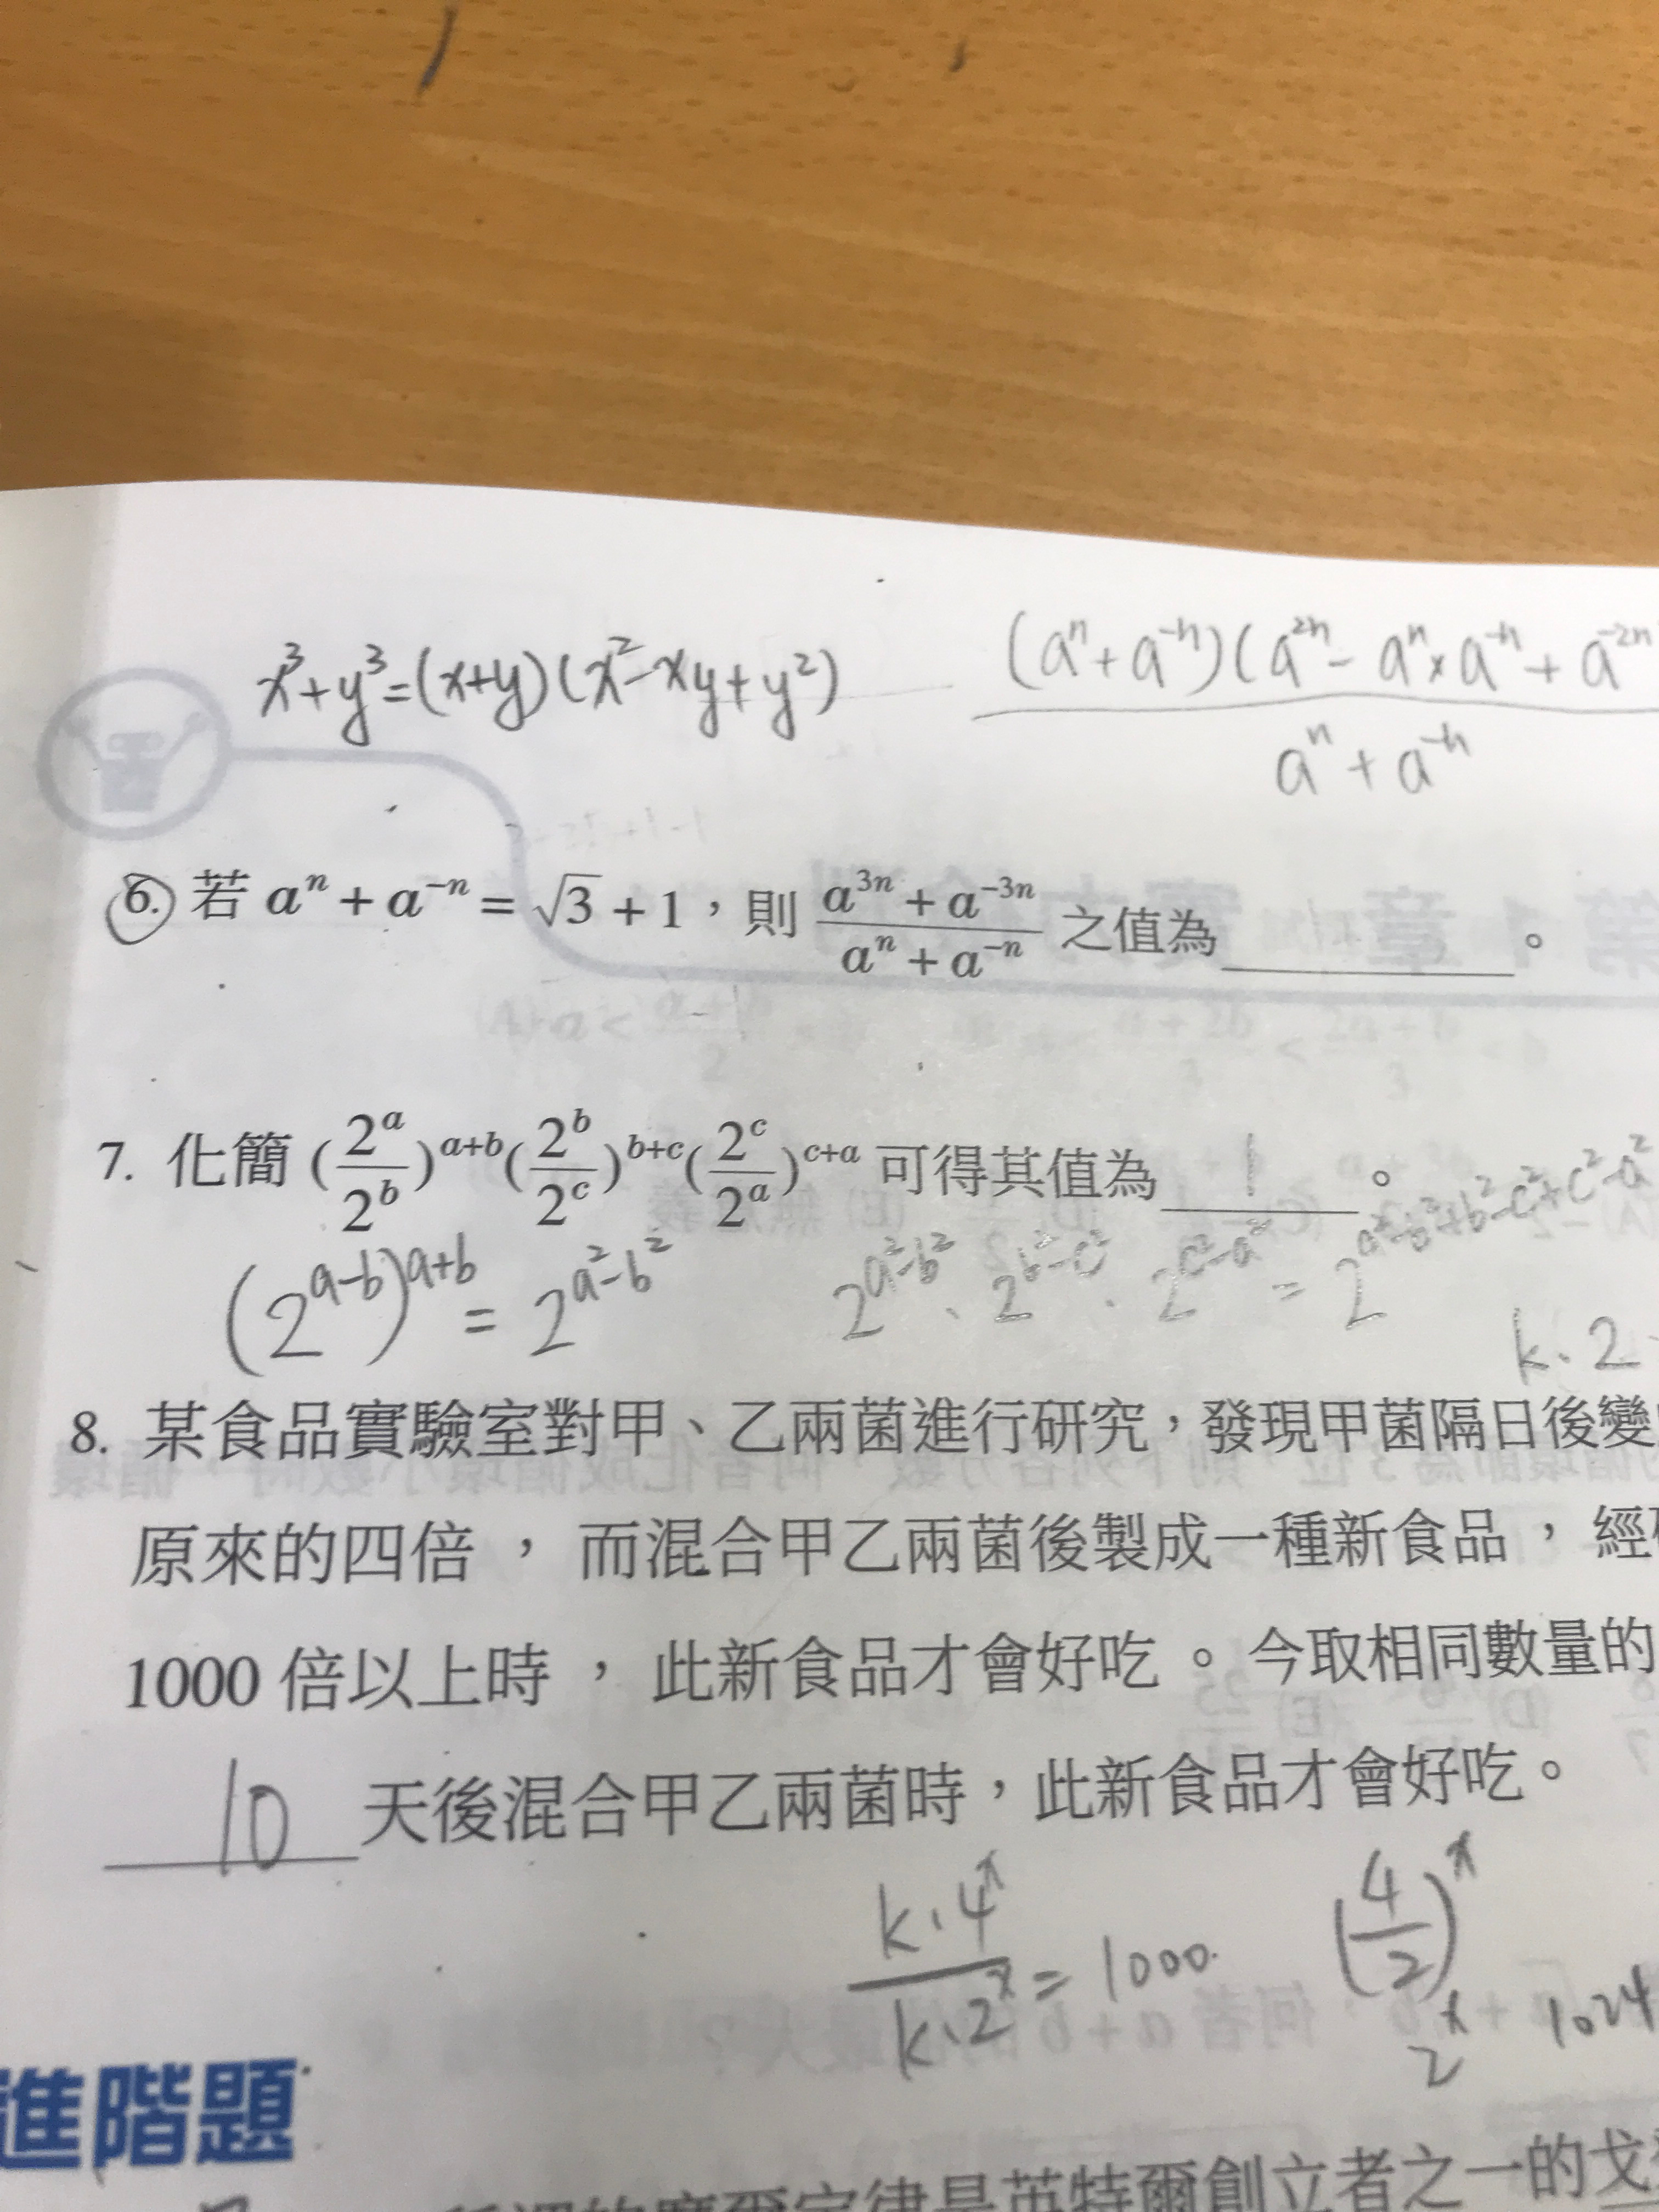 x³+y³=(x+y)(x²-xy+y²)
(aⁿ+a⁻ⁿ)(a²ⁿ-aⁿ×a⁻ⁿ+a⁻²ⁿ
aⁿ+a⁻ⁿ
6. 若 aⁿ + a⁻ⁿ = √3 + 1，則 (a³ⁿ + a⁻³ⁿ)/(aⁿ + a⁻ⁿ) 之值為______。
7. 化簡 (2ᵃ/2ᵇ)ᵃ⁺ᵇ(2ᵇ/2ᶜ)ᵇ⁺ᶜ(2ᶜ/2ᵃ)ᶜ⁺ᵃ 可得其值為 1 。
(2^(a-b))^(a+b) = 2^(a²-b²) 2^(a²-b²)·2^(b²-c²)·2^(c²-a²) = 2^(a²-b²+b²-c²+c²-a²)
k·2
8. 某食品實驗室對甲、乙兩菌進行研究，發現甲菌隔日後變
原來的四倍，而混合甲乙兩菌後製成一種新食品，經
1000 倍以上時，此新食品才會好吃。今取相同數量的
10 天後混合甲乙兩菌時，此新食品才會好吃。
(k·4ˣ)/(k·2ˣ) = 1000 (4/2)ˣ
2ˣ 1024
進階題
律是英特爾創立者之一的戈